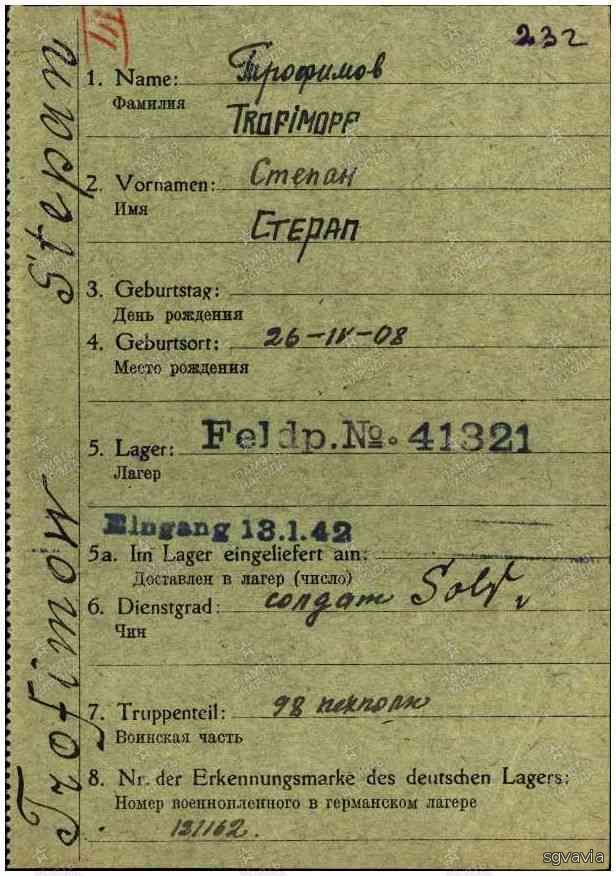 232
1. Name: Трофимов
Фамилия
TROFIMOFF
2. Vornamen: Степан
Имя
СТЕРАП
3. Geburtstag:
День рождения
4. Geburtsort: 26-IV-08
Место рождения
5. Lager: Feldp. No. 41321
Лагер
Eingang 13.1.42
5a. Im Lager eingeliefert am:
Доставлен в лагер (число)
6. Dienstgrad: солдат Sold.
Чин
7. Truppenteil: 98 пехполк
Воинская часть
8. Nr. der Erkennungsmarke des deutschen Lagers:
Номер военнопленного в германском лагере
131162.
Trofimow Stepan
sgvavia